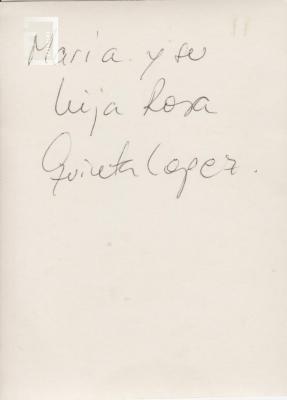 Maria y su
hija Rosa
Quireta Lopez.